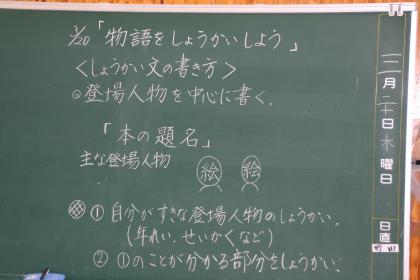 3/20「物語をしょうかいしよう」
<しょうかい文の書き方>
◎登場人物を中心に書く。
「本の題名」
主な登場人物 絵 絵
① 自分がすきな登場人物のしょうかい。
(年れい、せいかくなど)
② ①のことが分かる部分をしょうかい。
三月二十日木曜日
日直